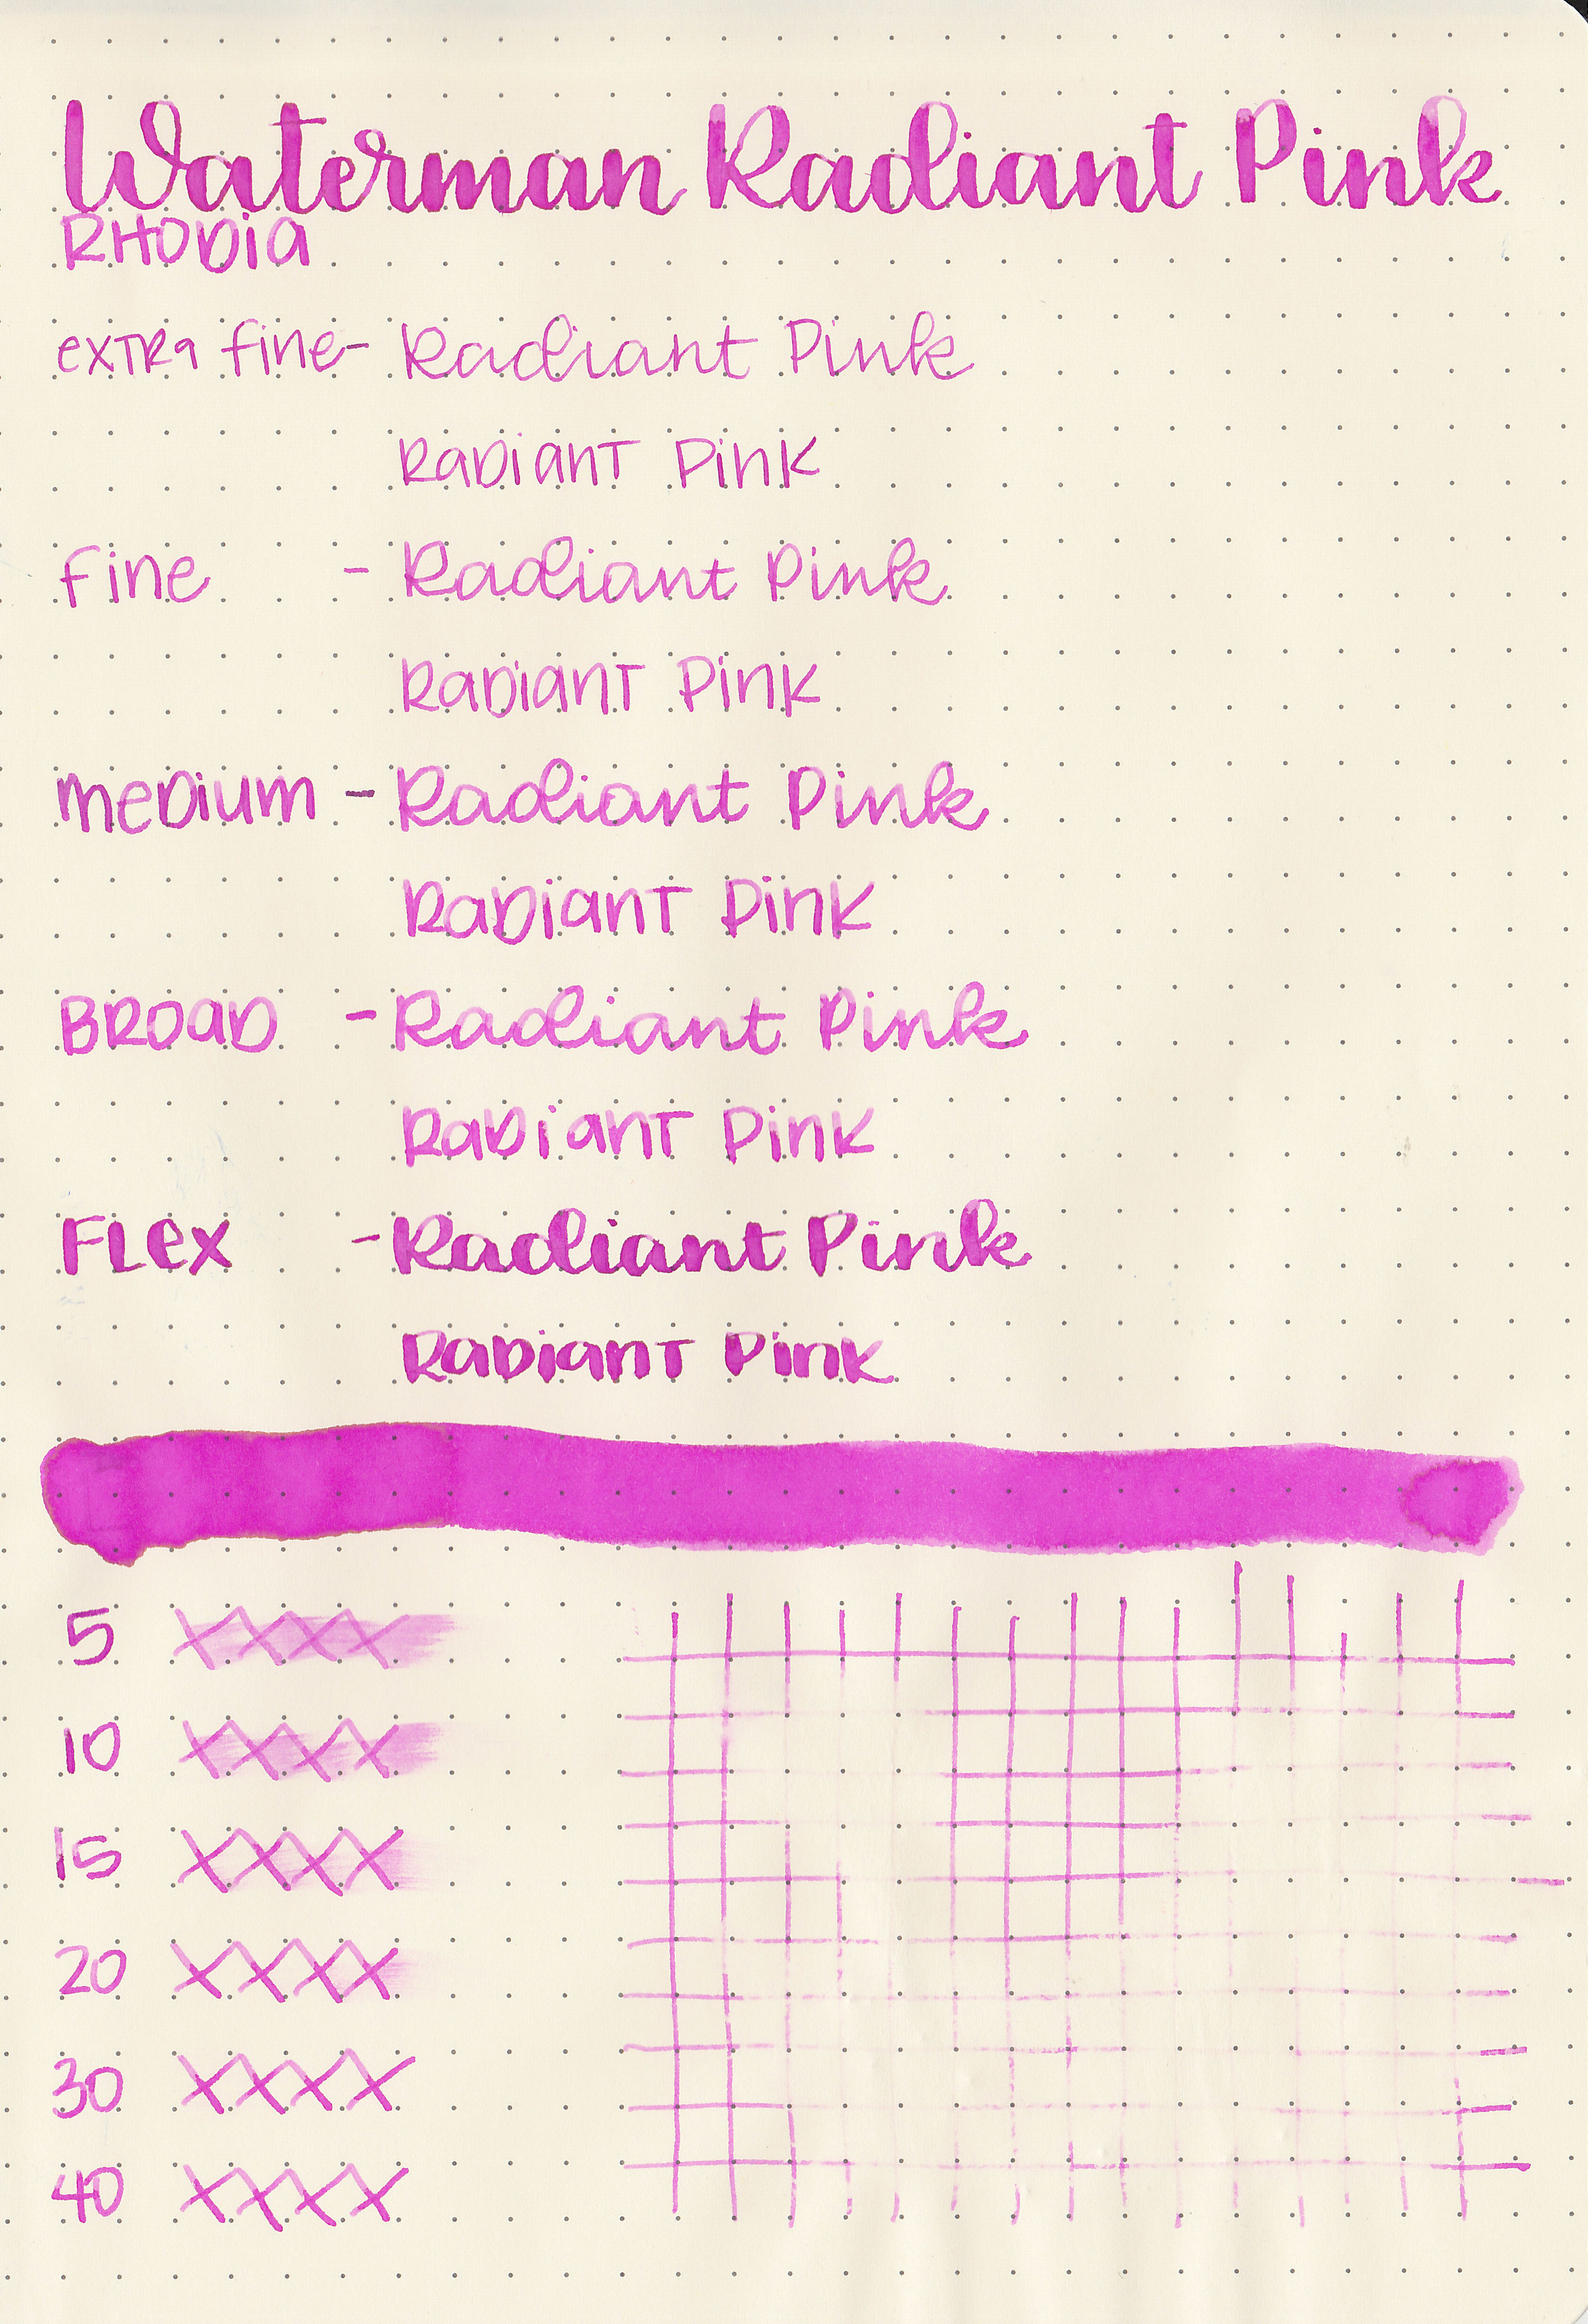 Waterman Radiant Pink
RHODia
exTRa fine- Radiant Pink
RaDianT Pink
fine - Radiant Pink
RaDianT Pink
meDium - Radiant Pink
RaDianT Pink
BROaD - Radiant Pink
RaDianT Pink
FLex - Radiant Pink
RaDianT Pink
5 XXXX
10 XXXX
15 XXXX
20 XXXX
30 XXXX
40 XXXX